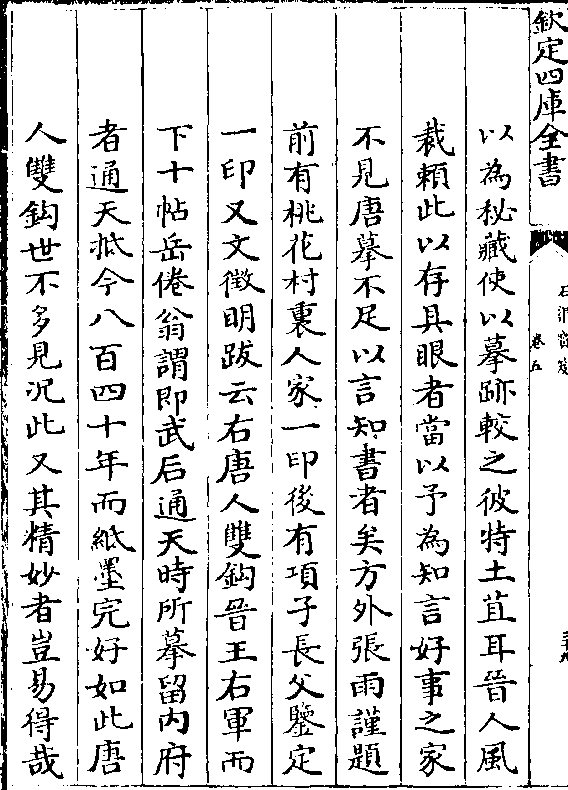 欽定四庫全書
石渠寶笈
卷五
以為秘藏使以摹跡較之彼特土苴耳晉人風
裁賴此以存具眼者當以予為知言好事之家
不見唐摹不足以言知書者矣方外張雨謹題
前有桃花村裏人家一印後有項子長父鑒定
一印又文徵明跋云右唐人雙鈎晉王右軍而
下十帖岳倦翁謂即武后通天時所摹留内府
者通天抵今八百四十年而紙墨完好如此唐
人雙鈎世不多見況此又其精妙者豈易得哉